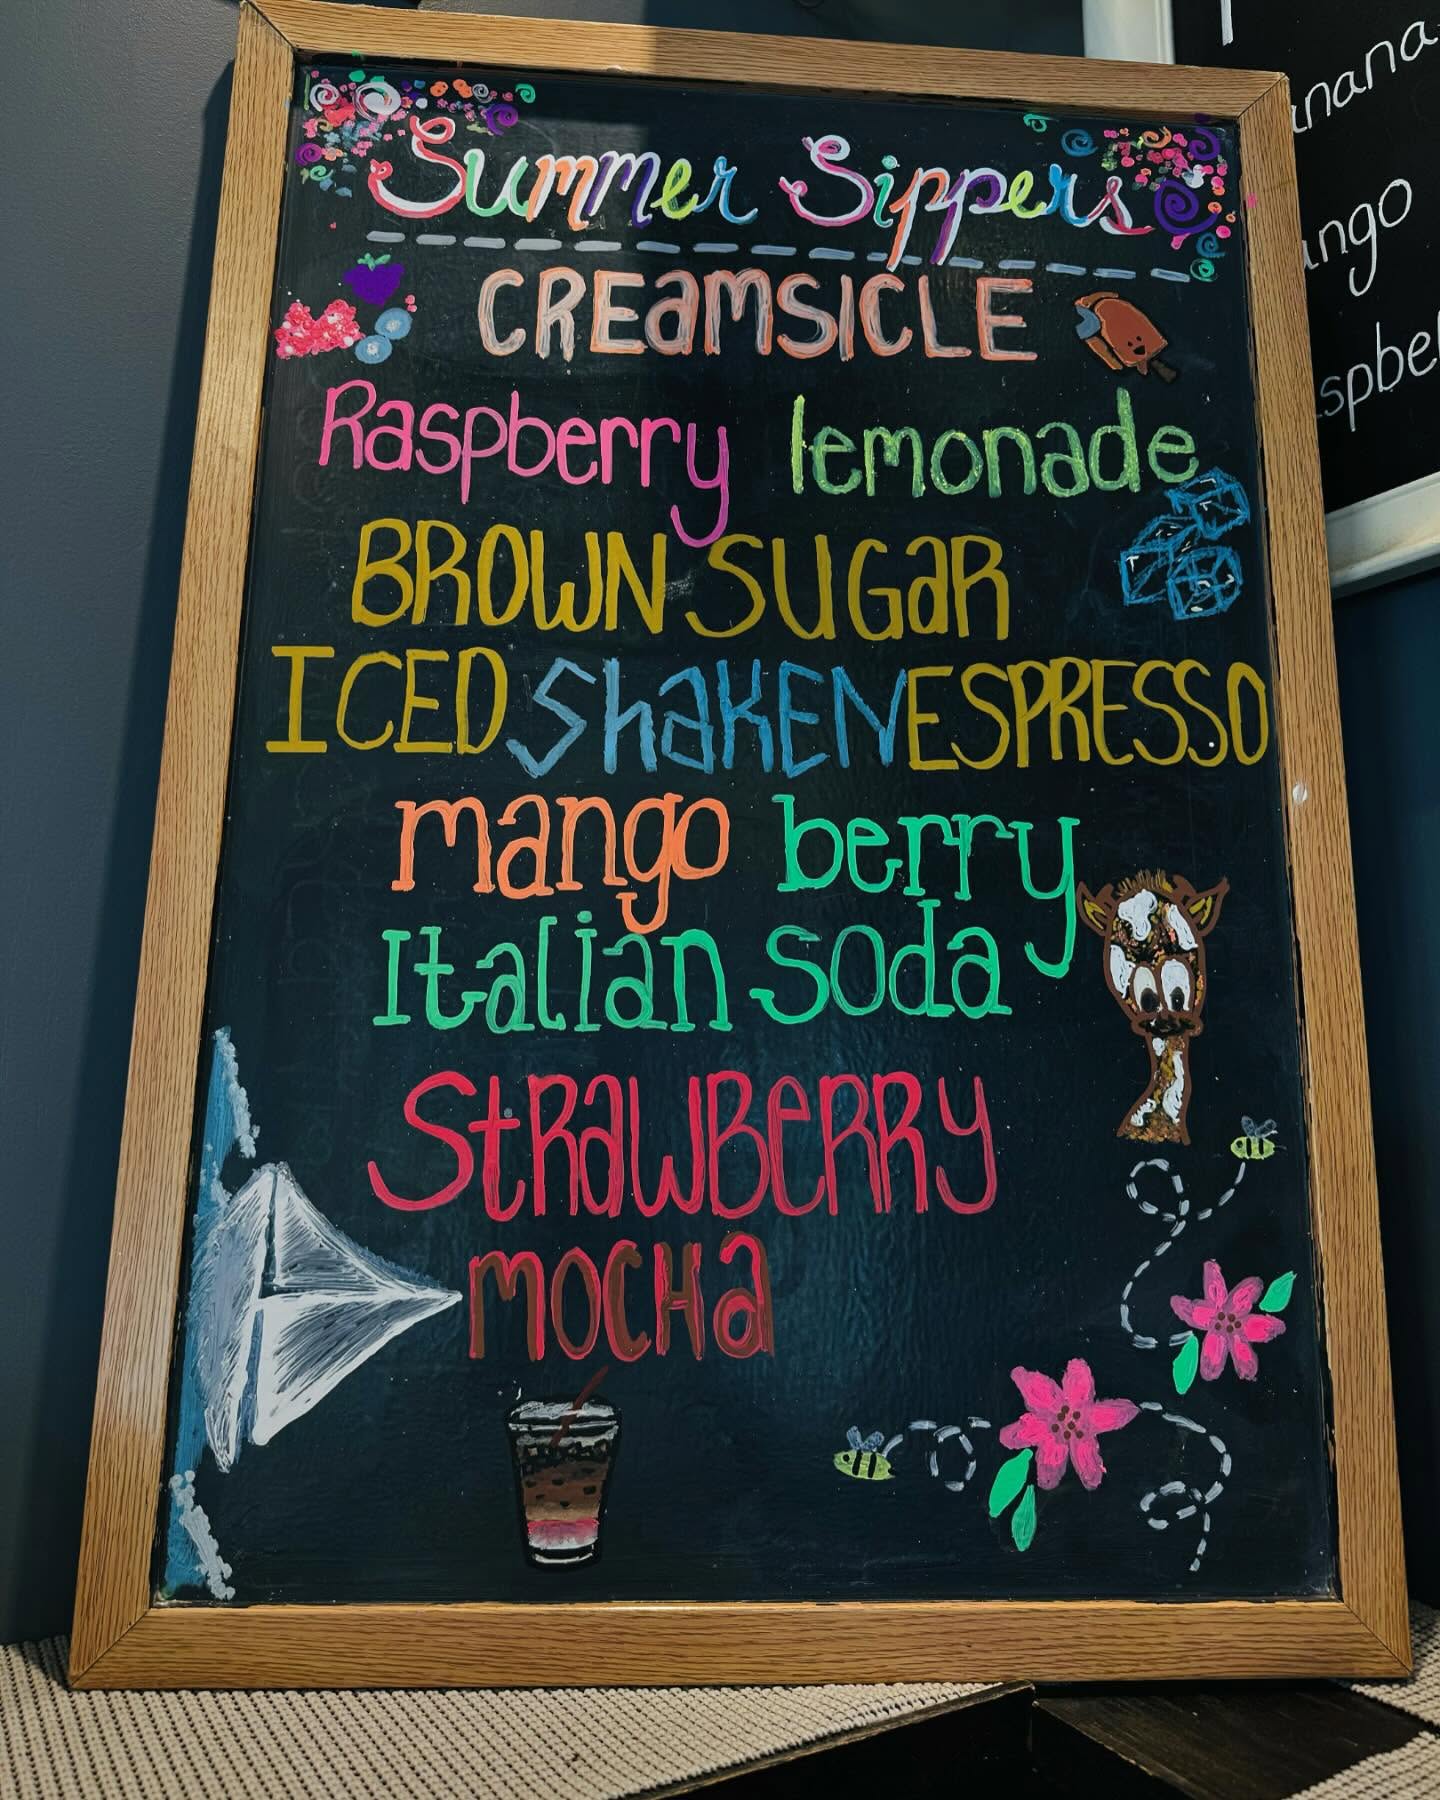 Summer Sippers
CREaMSICLE
Raspberry lemonade
BROWN SUGaR
ICED ShaKEN ESPRESSO
mango berry
Italian soda
StRaWBeRRy
MOCHa